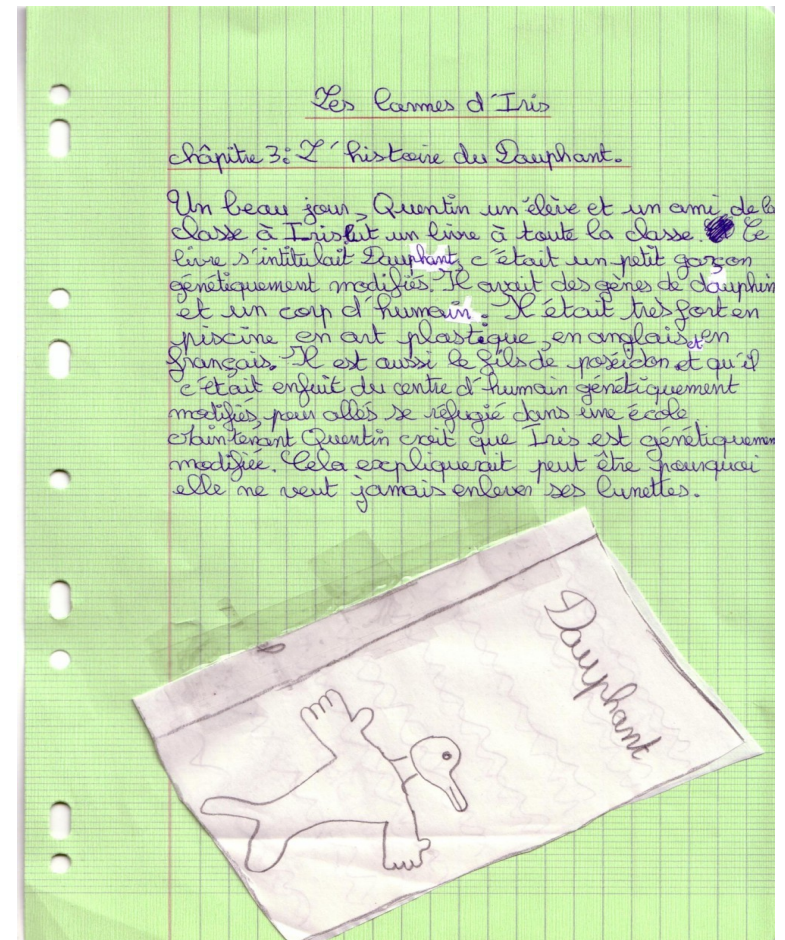 Les larmes d'Iris
châpitre 3: L'histoire du Dauphant.
Un beau jour, Quentin un élève et un ami de la
classe à Iris lut un livre à toute la classe. Ce
livre s'intitulait Dauphant, c'était un petit garçon
génétiquement modifiés. Il avait des gènes de dauphin
et un corp d'humain. Il était très fort en
piscine en art plastique, en anglais et en
français. Il est aussi le fils de poséidon et qu'il
c'était enfuit du centre d'humain génétiquement
modifiés, pour allés se réfugié dans une école
Maintenant Quentin croit que Iris est génétiquement
modifiée. Cela expliquerait peut être pourquoi
elle ne veut jamais enlever ses lunettes.
Dauphant